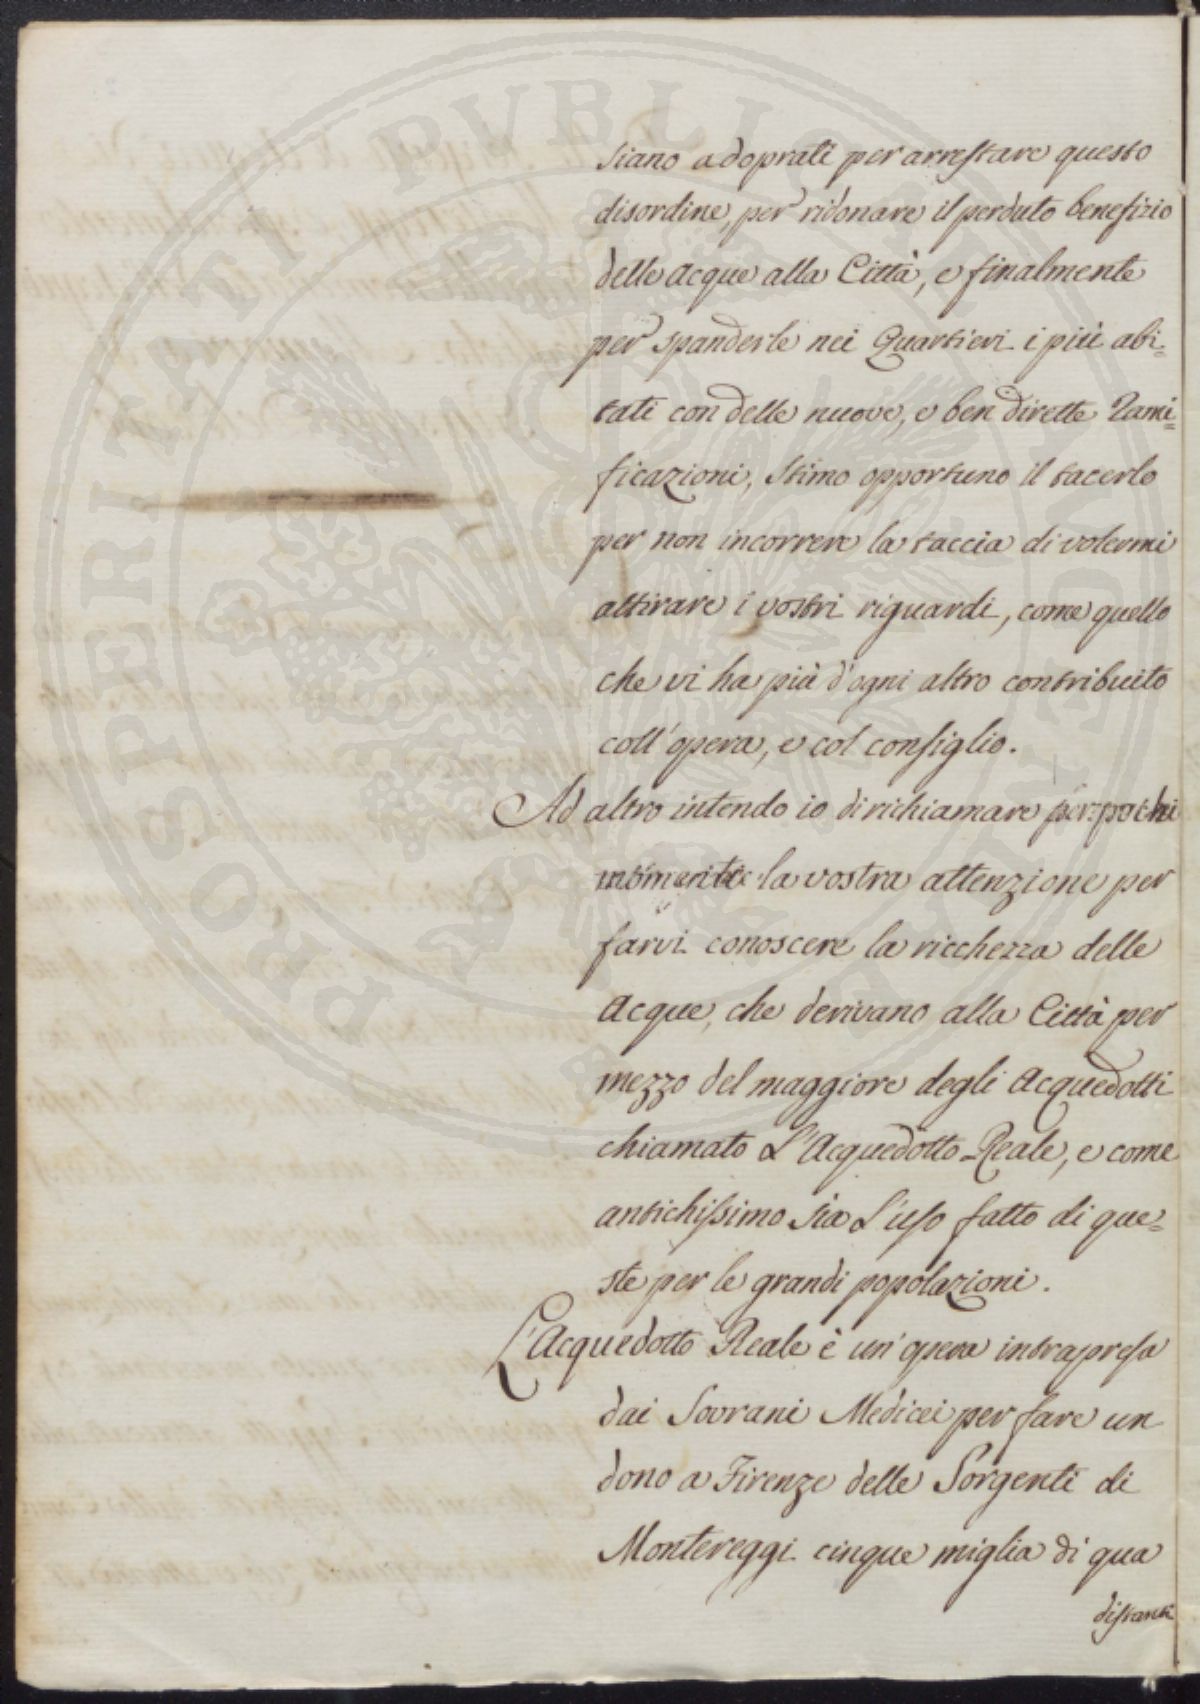 siano adoprati per arrestare questo
disordine, per ridonare il perduto benefizio
delle Acque alla Città, e finalmente
per spanderle nei Quartieri i più abi=
tati con delle nuove, e ben dirette Rami=
ficazioni, stimo opportuno il tacerlo
per non incorrere la taccia di volermi
attirare i vostri riguardi, come quello
che vi ha più d'ogni altro contribuito
coll'opera, e col consiglio.
Ad altro intendo io di richiamare per pochi
momenti la vostra attenzione per
farvi conoscere la ricchezza delle
Acque, che derivano alla Città per
mezzo del maggiore degli Acquedotti
chiamato L'Acquedotto Reale, e come
antichissimo sia L'uso fatto di que=
ste per le grandi popolazioni.
L'Acquedotto Reale è un'opera intrapresa
dai Sovrani Medicei per fare un
dono a Firenze delle Sorgenti di
Montereggi cinque miglia di qua
distanti
PROSPERITATI PVBLICAE AVGENDAE